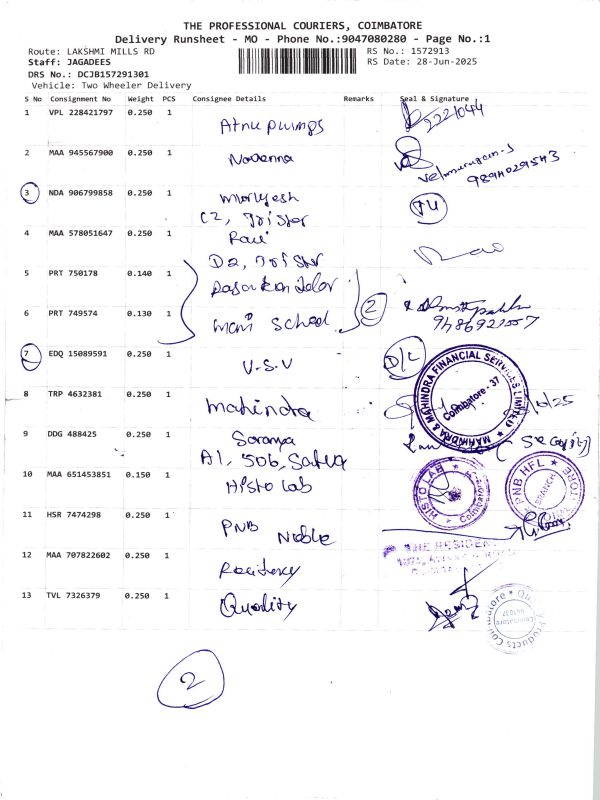 THE PROFESSIONAL COURIERS, COIMBATORE
Delivery Runsheet - MO - Phone No.:9047080280 - Page No.:1
Route: LAKSHMI MILLS RD
RS No.: 1572913
Staff: JAGADEES
RS Date: 28-Jun-2025
DRS No.: DCJB157291301
Vehicle: Two Wheeler Delivery
S No Consignment No Weight PCS Consignee Details Remarks Seal & Signature
1 VPL 228421797 0.250 1 2221044
2 MAA 945567900 0.250 1 Velmurugan-S
9894029543
3 NDA 906799858 0.250 1
C2, Trister TU
4 MAA 578051647 0.250 1 Ravi
D2, Trister
5 PRT 750178 0.140 1
6 PRT 749574 0.130 1 mani School 2
9486921557
7 EDQ 15089591 0.250 1 V.S.V D/L
8 TRP 4632381 0.250 1 mahindra
MAHINDRA & MAHINDRA FINANCIAL SERVICES LIMITED
Coimbatore - 37
9 DDG 488425 0.250 1 Saranya
A1, 506, Sativa
10 MAA 651453851 0.150 1 Histo Lab
HISTO LAB Coimbatore
PNB HFL BRANCH
11 HSR 7474298 0.250 1 PNB Noble
12 MAA 707822602 0.250 1
THE RESIDEN
13 TVL 7326379 0.250 1 Quality
Products Coimbatore
2